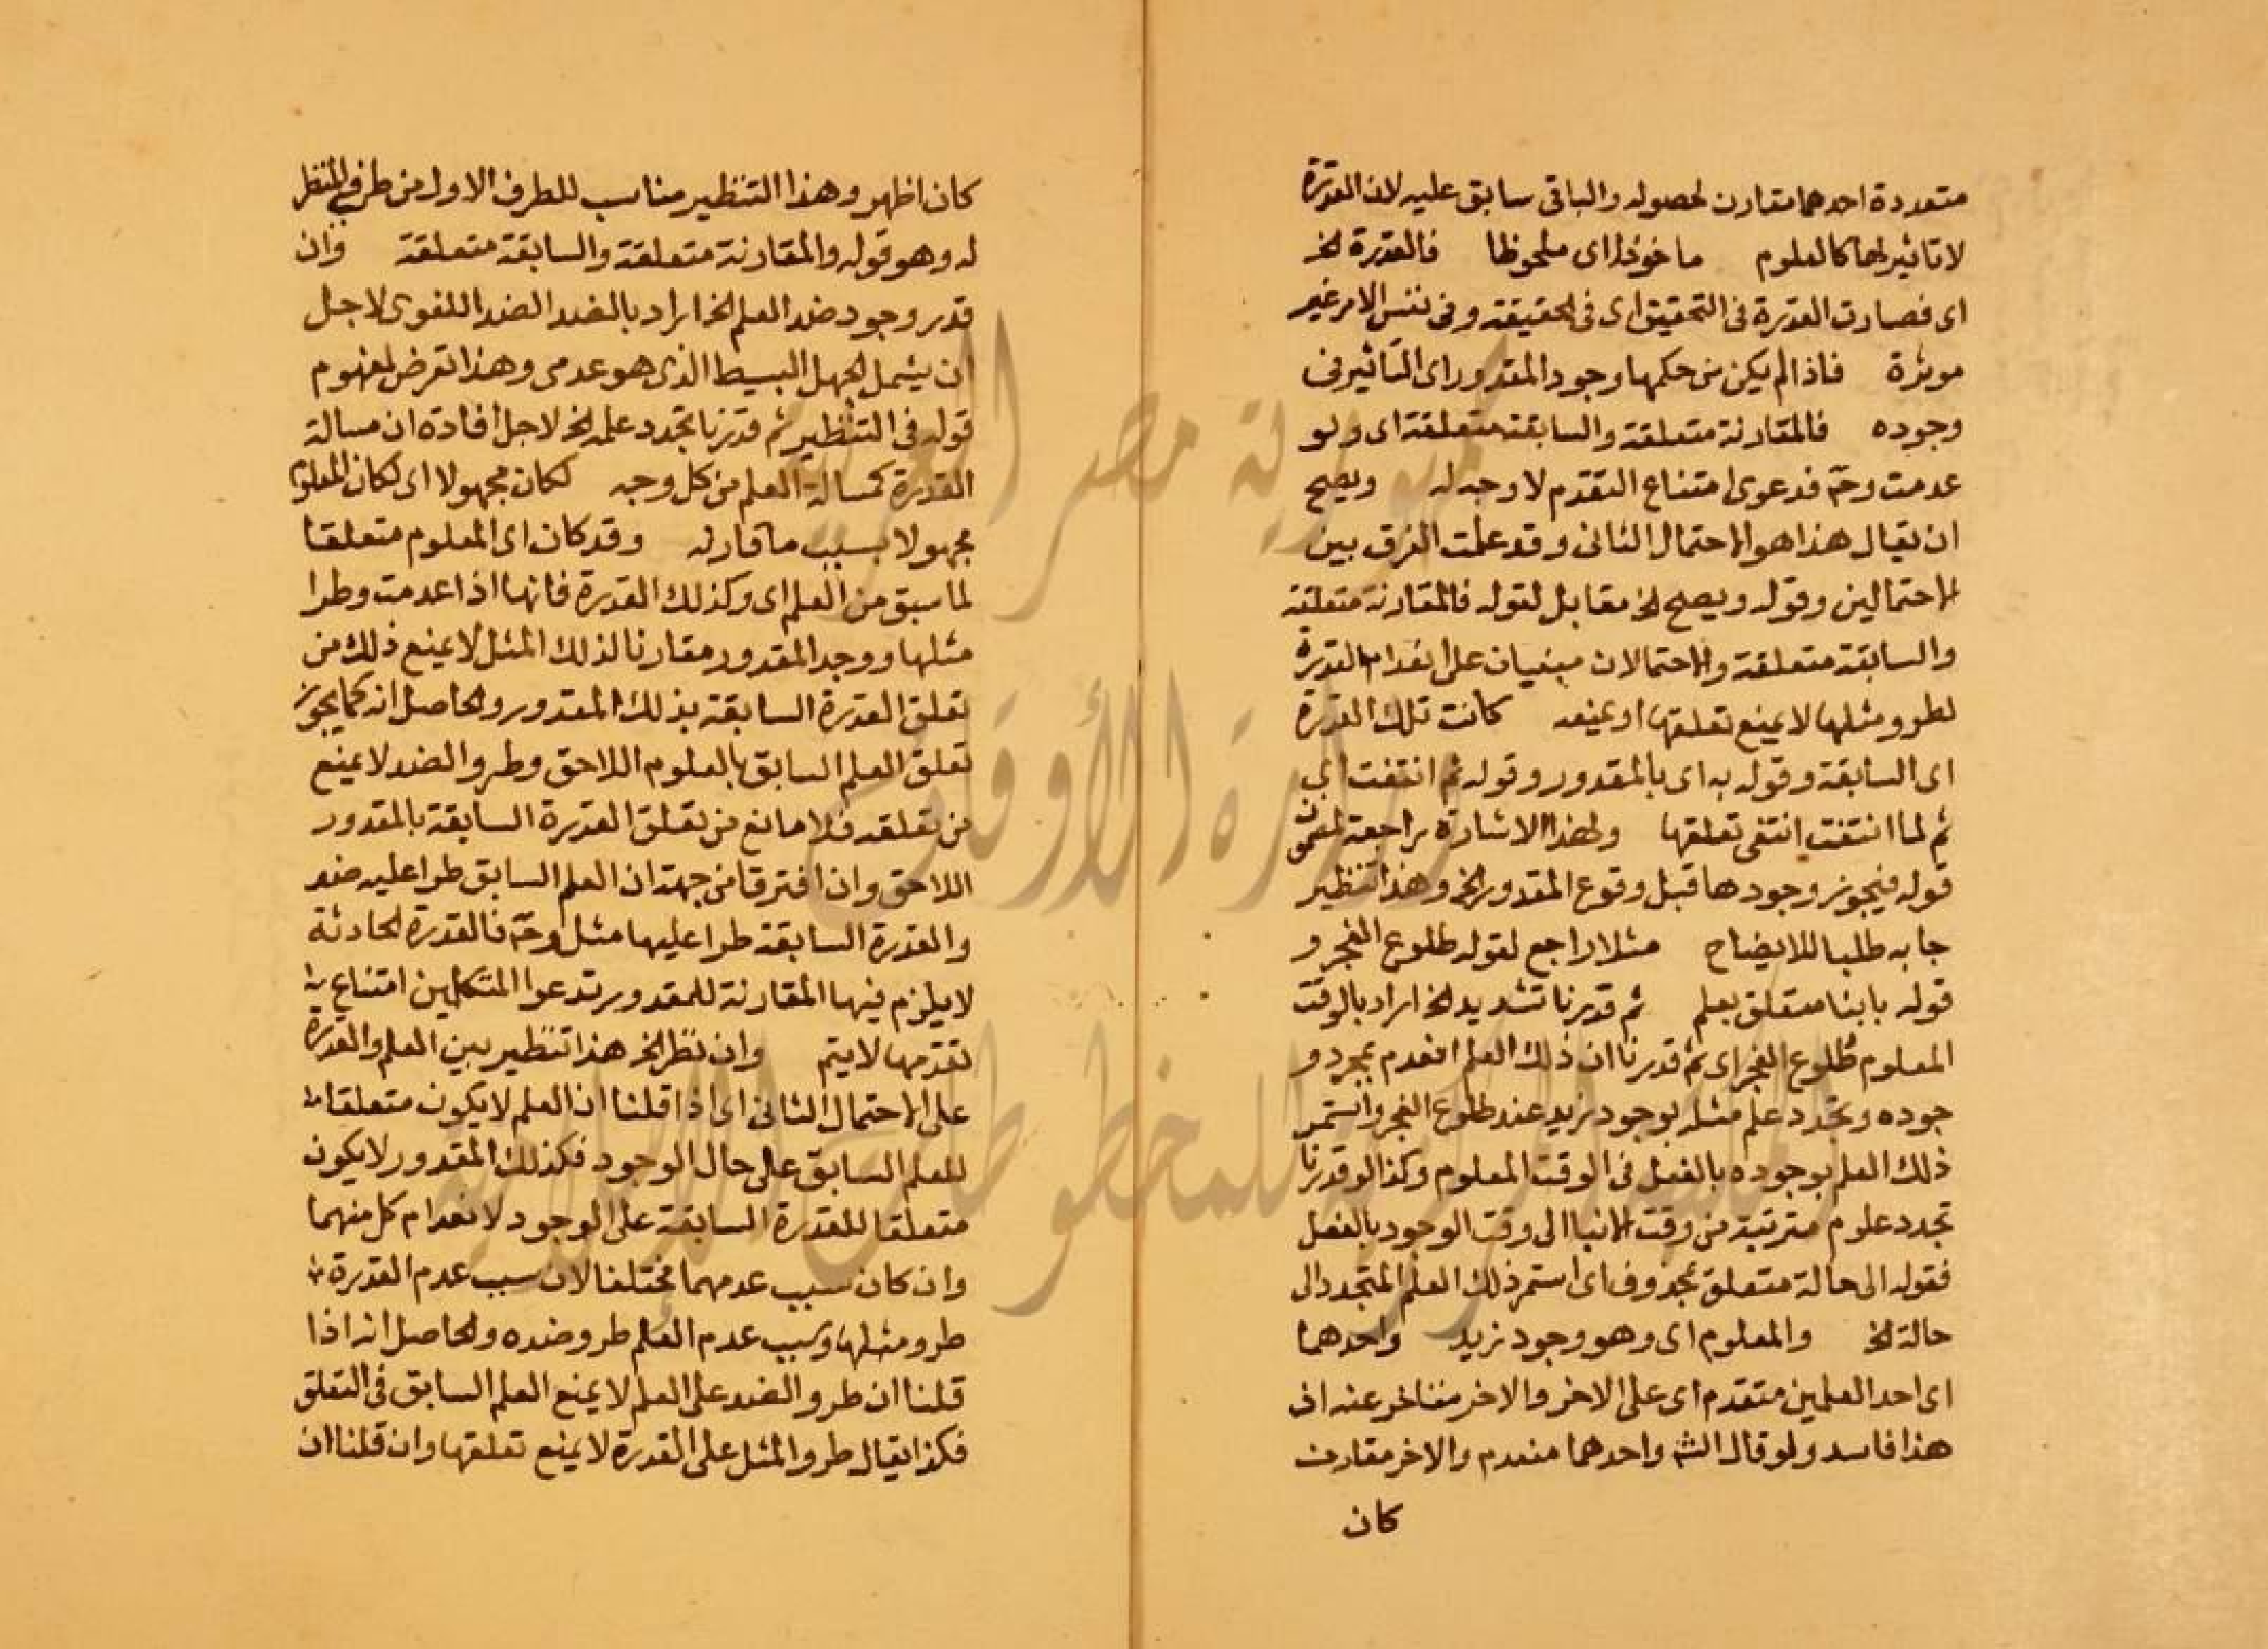 متعددة احدهما مقارن لحصوله والباقى سابق عليه لان القدرة
لا تاثير لها كالعلوم ماخوذا اى ملحوظا فالقدرة الخ
اى فصارت القدرة فى التحقيق اى فى الحقيقة وفى نفس الامر غير
موثرة فاذا لم يكن من حكمها وجود المقدور اى التاثير فى
وجوده فالمقارنة متعلقة والسابقة متعلقة اى ولو
عدمت وح فدعوى امتناع التقدم لا وجه له ويصح
ان يقال هذا هو الاحتمال الثانى وقد علمت الفرق بين
الاحتمالين وقوله ويصح الخ مقابل لقوله فالمقارنة متعلقة
والسابقة متعلقة والاحتمالان مبنيان على انعدام القدرة
لطرو مثلها لا يمنع تعلقها او يمنعه كانت تلك القدرة
اى السابقة وقوله به اى بالمقدور وقوله ثم انتفت اى
ثم لما انتفت انتفى تعلقها ولهذا الاشارة راجعة لمضمون
قوله فيجوز وجودها قبل وقوع المقدور الخ وهذا تنظير
جا به طلبا للايضاح مثلا راجع لقوله طلوع الفجر و
قوله بابنا متعلق بعلم ثم قدرنا تشديد الخ اراد بالوقت
المعلوم طلوع الفجر اى ثم قدرنا ان ذلك العلم انعدم بمجرد و
جوده وتجدد علم مثله بوجود زيد عند طلوع الفجر واستمر
ذلك العلم بوجوده بالفعل فى الوقت المعلوم وكذا لو قدرنا
تجدد علوم مترتبة من وقت الانبا الى وقت الوجود بالفعل
فقوله الى حالة متعلق بمحذوف اى استمر ذلك العلم المتجدد الى
حالة الخ والمعلوم اى وهو وجود زيد واحدهما
اى احد العلمين متقدم اى على الاخر والاخر متاخر عنه اذ
هذا فاسد ولو قال الش واحدهما منعدم والاخر مقارن
كان
كان اظهر وهذا التنظير مناسب للطرف الاول من طرفى المنظر
له وهو قوله والمقارنة متعلقة والسابقة متعلقة وان
قدر وجود ضد العلم الخ اراد بالضد الضد اللغوى لاجل
ان يشمل الجهل البسيط الذى هو عدمى وهذا تعرض لمفهوم
قوله فى التنظير ثم قدرنا تجدد علم الخ لاجل افادة ان مسالة
القدرة كمسالة العلم من كل وجه لكان مجهولا اى لكان المعلوم
مجهولا بسبب ما قارنه وقد كان اى المعلوم متعلقا
لما سبق من العلم اى وكذلك القدرة فانها اذا عدمت وطرا
مثلها ووجد المقدور مقارنا لذلك المثل لا يمنع ذلك من
تعلق القدرة السابقة بذلك المقدور والحاصل انه كما يجوز
تعلق العلم السابق بالعلوم اللاحق وطرو الضد لا يمنع
من تعلقه فلا مانع من تعلق القدرة السابقة بالمقدور
اللاحق وان افترقا من جهة ان العلم السابق طرا عليه ضد
والقدرة السابقة طرا عليها مثل وح فالقدرة الحادثة
لا يلزم فيها المقارنة للمقدور فدعوا المتكلمين امتناع
تقدمها لا يتم وان نظر الخ هذا تنظير بين العلم والقدرة
على الاحتمال الثانى اى اذا قلنا ان العلم لا يكون متعلقا
للعلم السابق على حال الوجود فكذلك المقدور لا يكون
متعلقا للقدرة السابقة على الوجود لانعدام كل منهما
وان كان سبب عدمهما مختلفا لان سبب عدم القدرة
طرو مثلها وسبب عدم العلم طرو ضده والحاصل انه اذا
قلنا ان طرو الضد على العلم لا يمنع العلم السابق فى التعلق
فكذا يقال طرو المثل على القدرة لا يمنع تعلقها وان قلنا ان
جمهورية مصر العربية
وزارة الأوقاف
المكتبة المركزية للمخطوطات الإسلامية